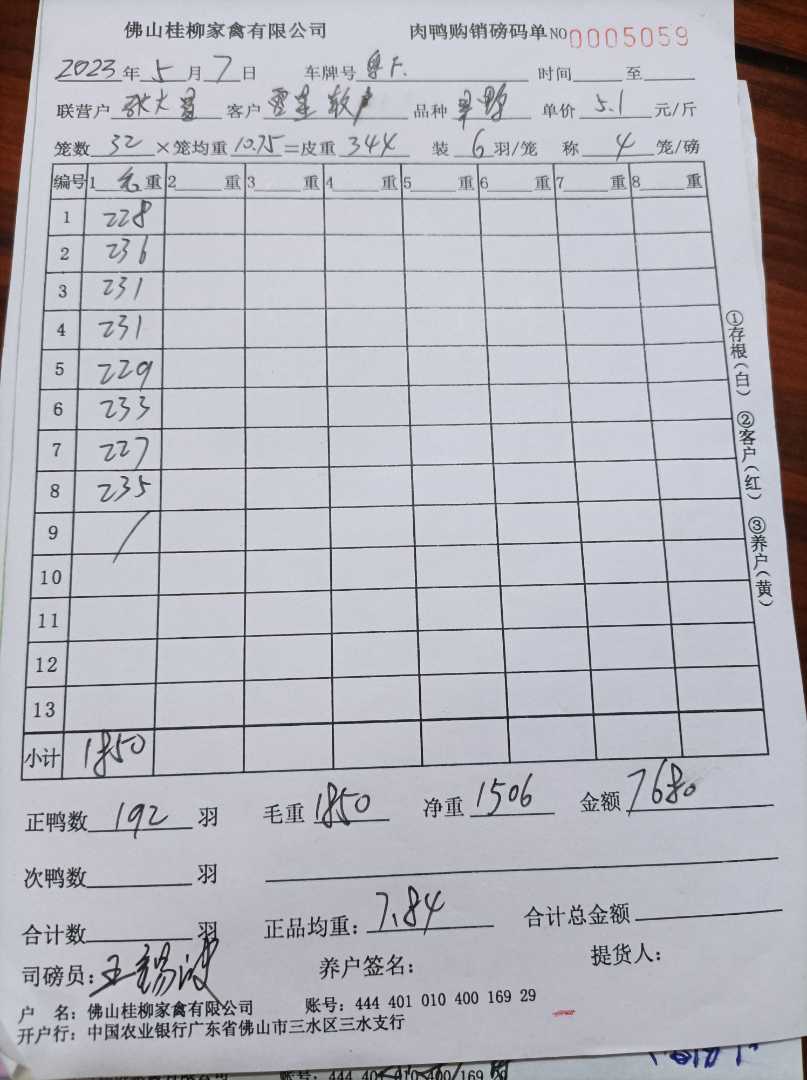 佛山桂柳家禽有限公司 肉鸭购销磅码单 NO 0005059
2023年5月7日 车牌号 粤F. 时间 至
联营户 张大 客户 品种 单价 5.1 元/斤
笼数 32 ×笼均重 10.75 =皮重 344 装 6 羽/笼 称 4 笼/磅
编号 1 毛 重 2 重 3 重 4 重 5 重 6 重 7 重 8 重
1 228
2 236
3 231
4 231
5 229
6 233
7 227
8 235
9 /
10
11
12
13
小计 1850
①存根(白) ②客户(红) ③养户(黄)
正鸭数 192 羽 毛重 1850 净重 1506 金额 7680
次鸭数 羽
合计数 羽 正品均重: 7.84 合计总金额
司磅员: 王锡波 养户签名: 提货人:
户 名: 佛山桂柳家禽有限公司 账号: 444 401 010 400 169 29
开户行: 中国农业银行广东省佛山市三水区三水支行
账号: 444 401 010 400 169